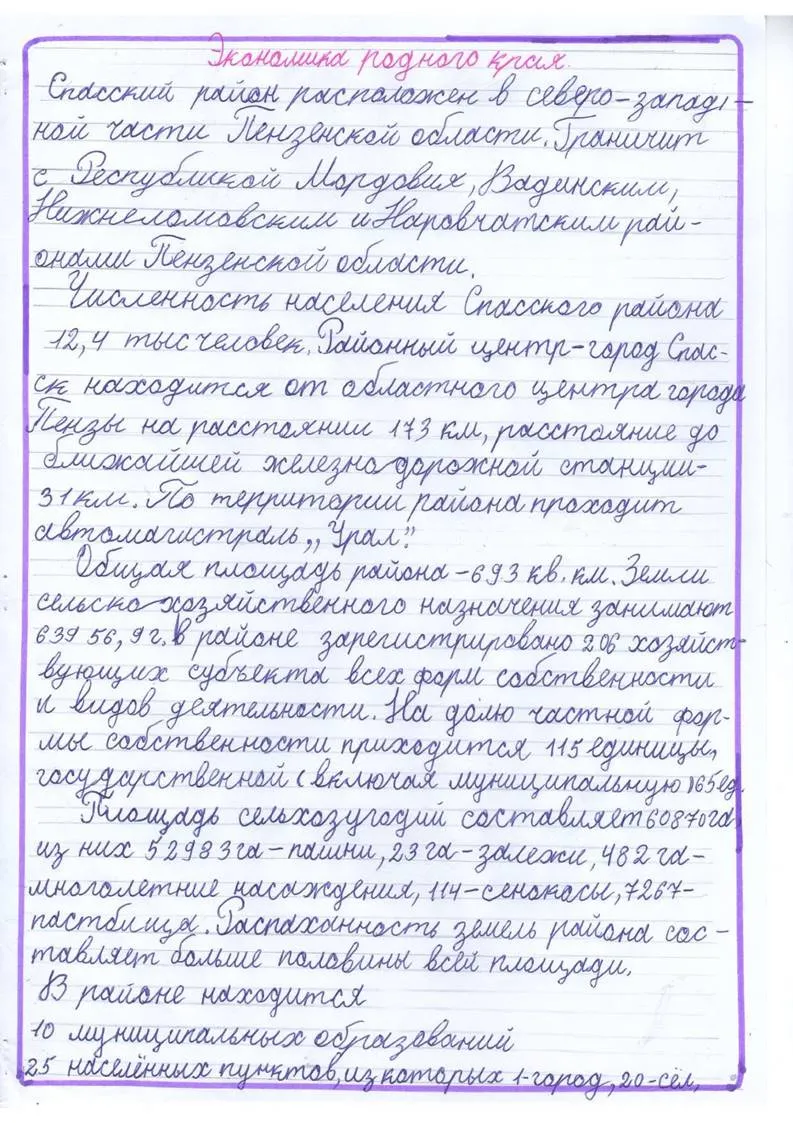 Экономика родного края.
Спасский район расположен в северо-запад-
ной части Пензенской области. Граничит
с Республикой Мордовия, Вадинским,
Нижнеломовским и Наровчатским рай-
онами Пензенской области.
Численность населения Спасского района
12,4 тыс человек. Районный центр-город Спас-
ск находится от областного центра города
Пензы на расстоянии 173 км, расстояние до
ближайшей железнодорожной станции-
31км. По территории района проходит
автомагистраль „Урал".
Общая площадь района-693 кв. км. Земли
сельскохозяйственного назначения занимают
639 56,9 г. В районе зарегистрировано 206 хозяйст-
вующих субъекта всех форм собственности
и видов деятельности. На долю частной фор-
мы собственности приходится 115 единицы,
государственной (включая муниципальную) 65 ед.
Площадь сельхозугодий составляет 60870га,
из них 52983га-пашни, 23 га-залежи, 482 га-
многолетние насаждения, 114-сенокосы, 7267-
пастбища. Распаханность земель района сос-
тавляет больше половины всей площади.
В районе находится
10 муниципальных образований
25 населённых пунктов, из которых 1-город, 20-сёл,